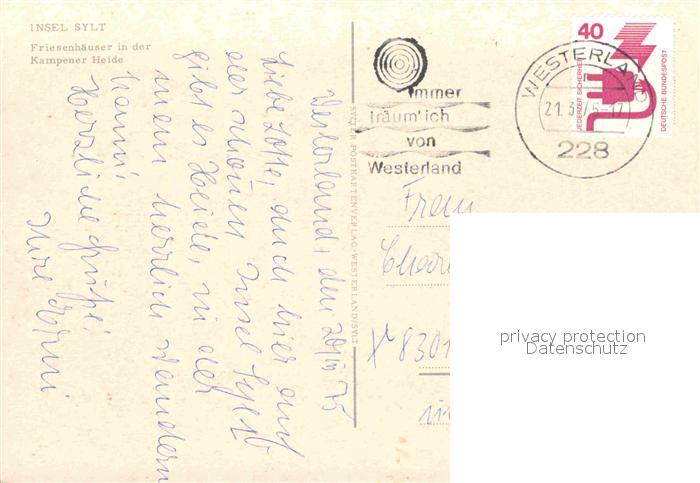 INSEL SYLT
Friesenhäuser in der
Kampener Heide
Westerland, den 20/III 75
Liebe Lotte, auch hier auf
der schönen Insel Sylt
gibt es Heide, in der
man herrlich wandern
kann!
Herzliche Grüße!
Ihre
SYLTER POSTKARTENVERLAG·WESTERLAND/SYLT
immer
träum' ich
von
Westerland
WESTERLAND
21.3.75-17
228
40
JEDERZEIT SICHERHEIT
DEUTSCHE BUNDESPOST
Frau
X 8301
in
privacy protection
Datenschutz